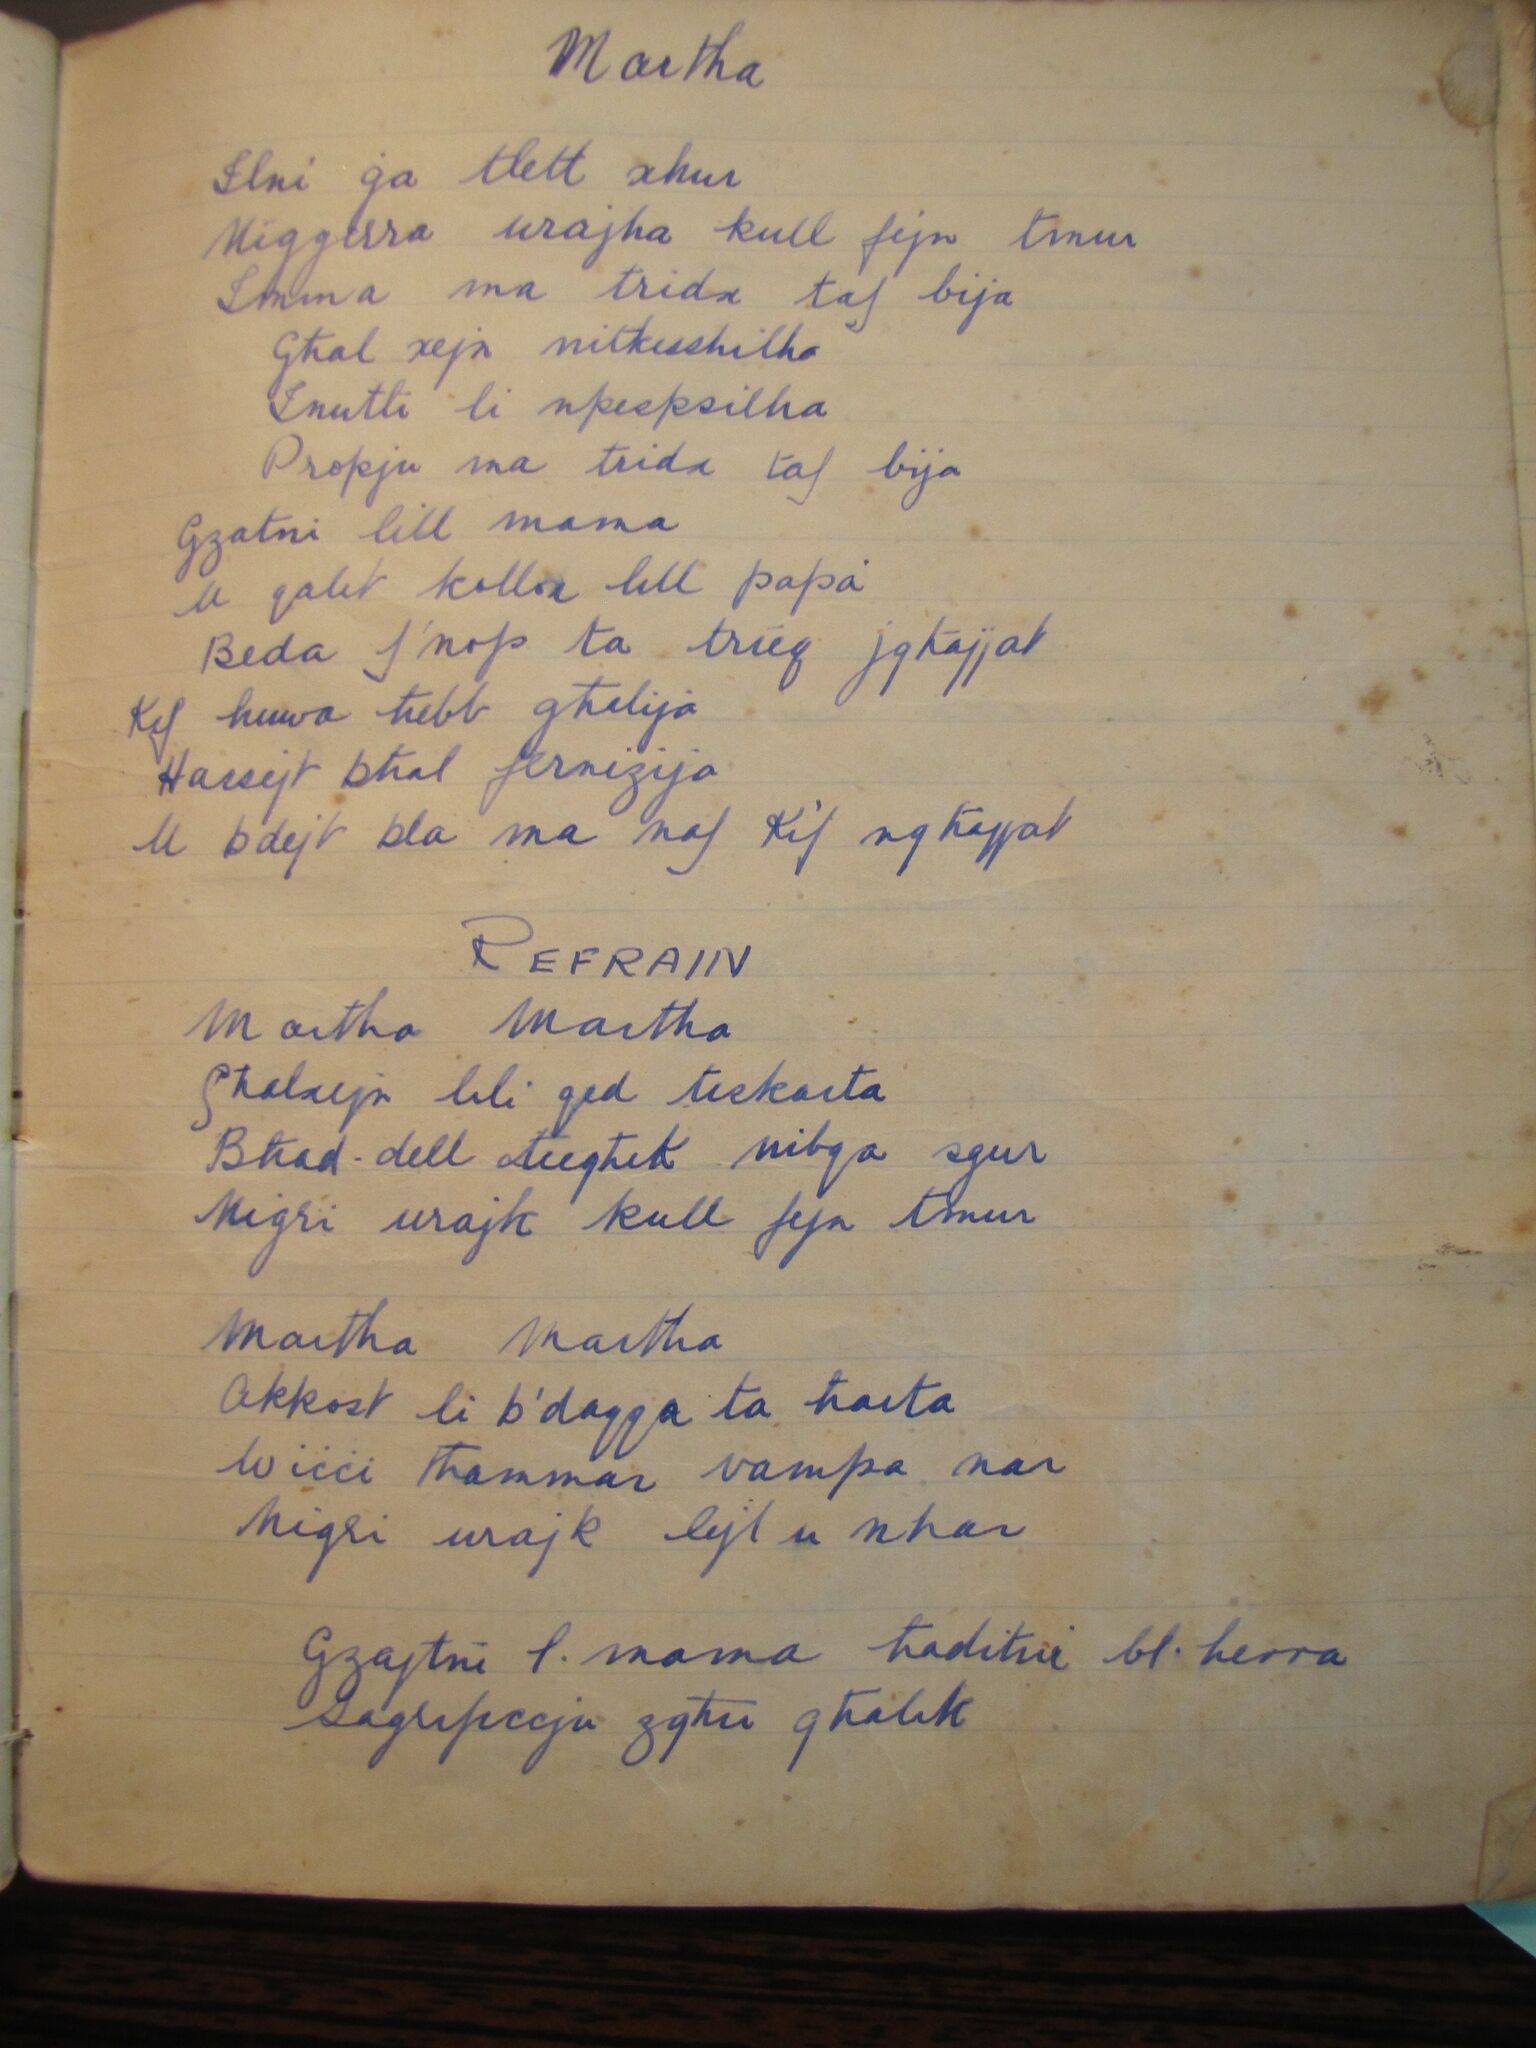 Martha
Ilni ġa tlett xhur
Niġġerra urajha kull fejn tmur
Imma ma tridx taf bija
Għal xejn nitkesshilha
Inutli li npespsilha
Propju ma tridx taf bija
Gżatni lill mama
U qalet kollox lill papá
Beda f'nofs ta trieq jgħajjat
Kif huwa ħebb għalija
Ħassejt bħal ferniżija
U bdejt bla ma naf kif ngħajjat
REFRAIIN
Martha Martha
Għalxejn lili qed teskarta
Bħad-dell tiegħek nibqa sgur
Niġri urajk kull fejn tmur
Martha Martha
Akkost li b'daqqa ta ħarta
Wiċċi ħammar vampa nar
Niġri urajk lejl u nhar
Gżajtni l. mama ħaditni bl. herra
Sagrifiċċju żgħir għalik